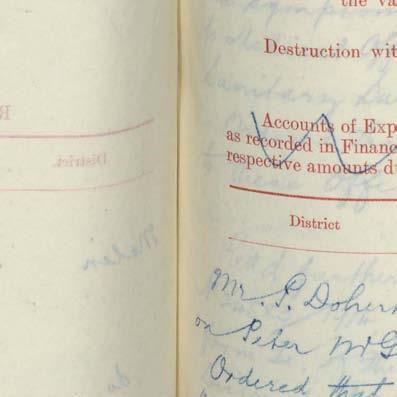 the Va
Destruction wit
Accounts of Exp
as recorded in Financ
respective amounts d
District
Mr. P. Doher
on Peter McG
Ordered that